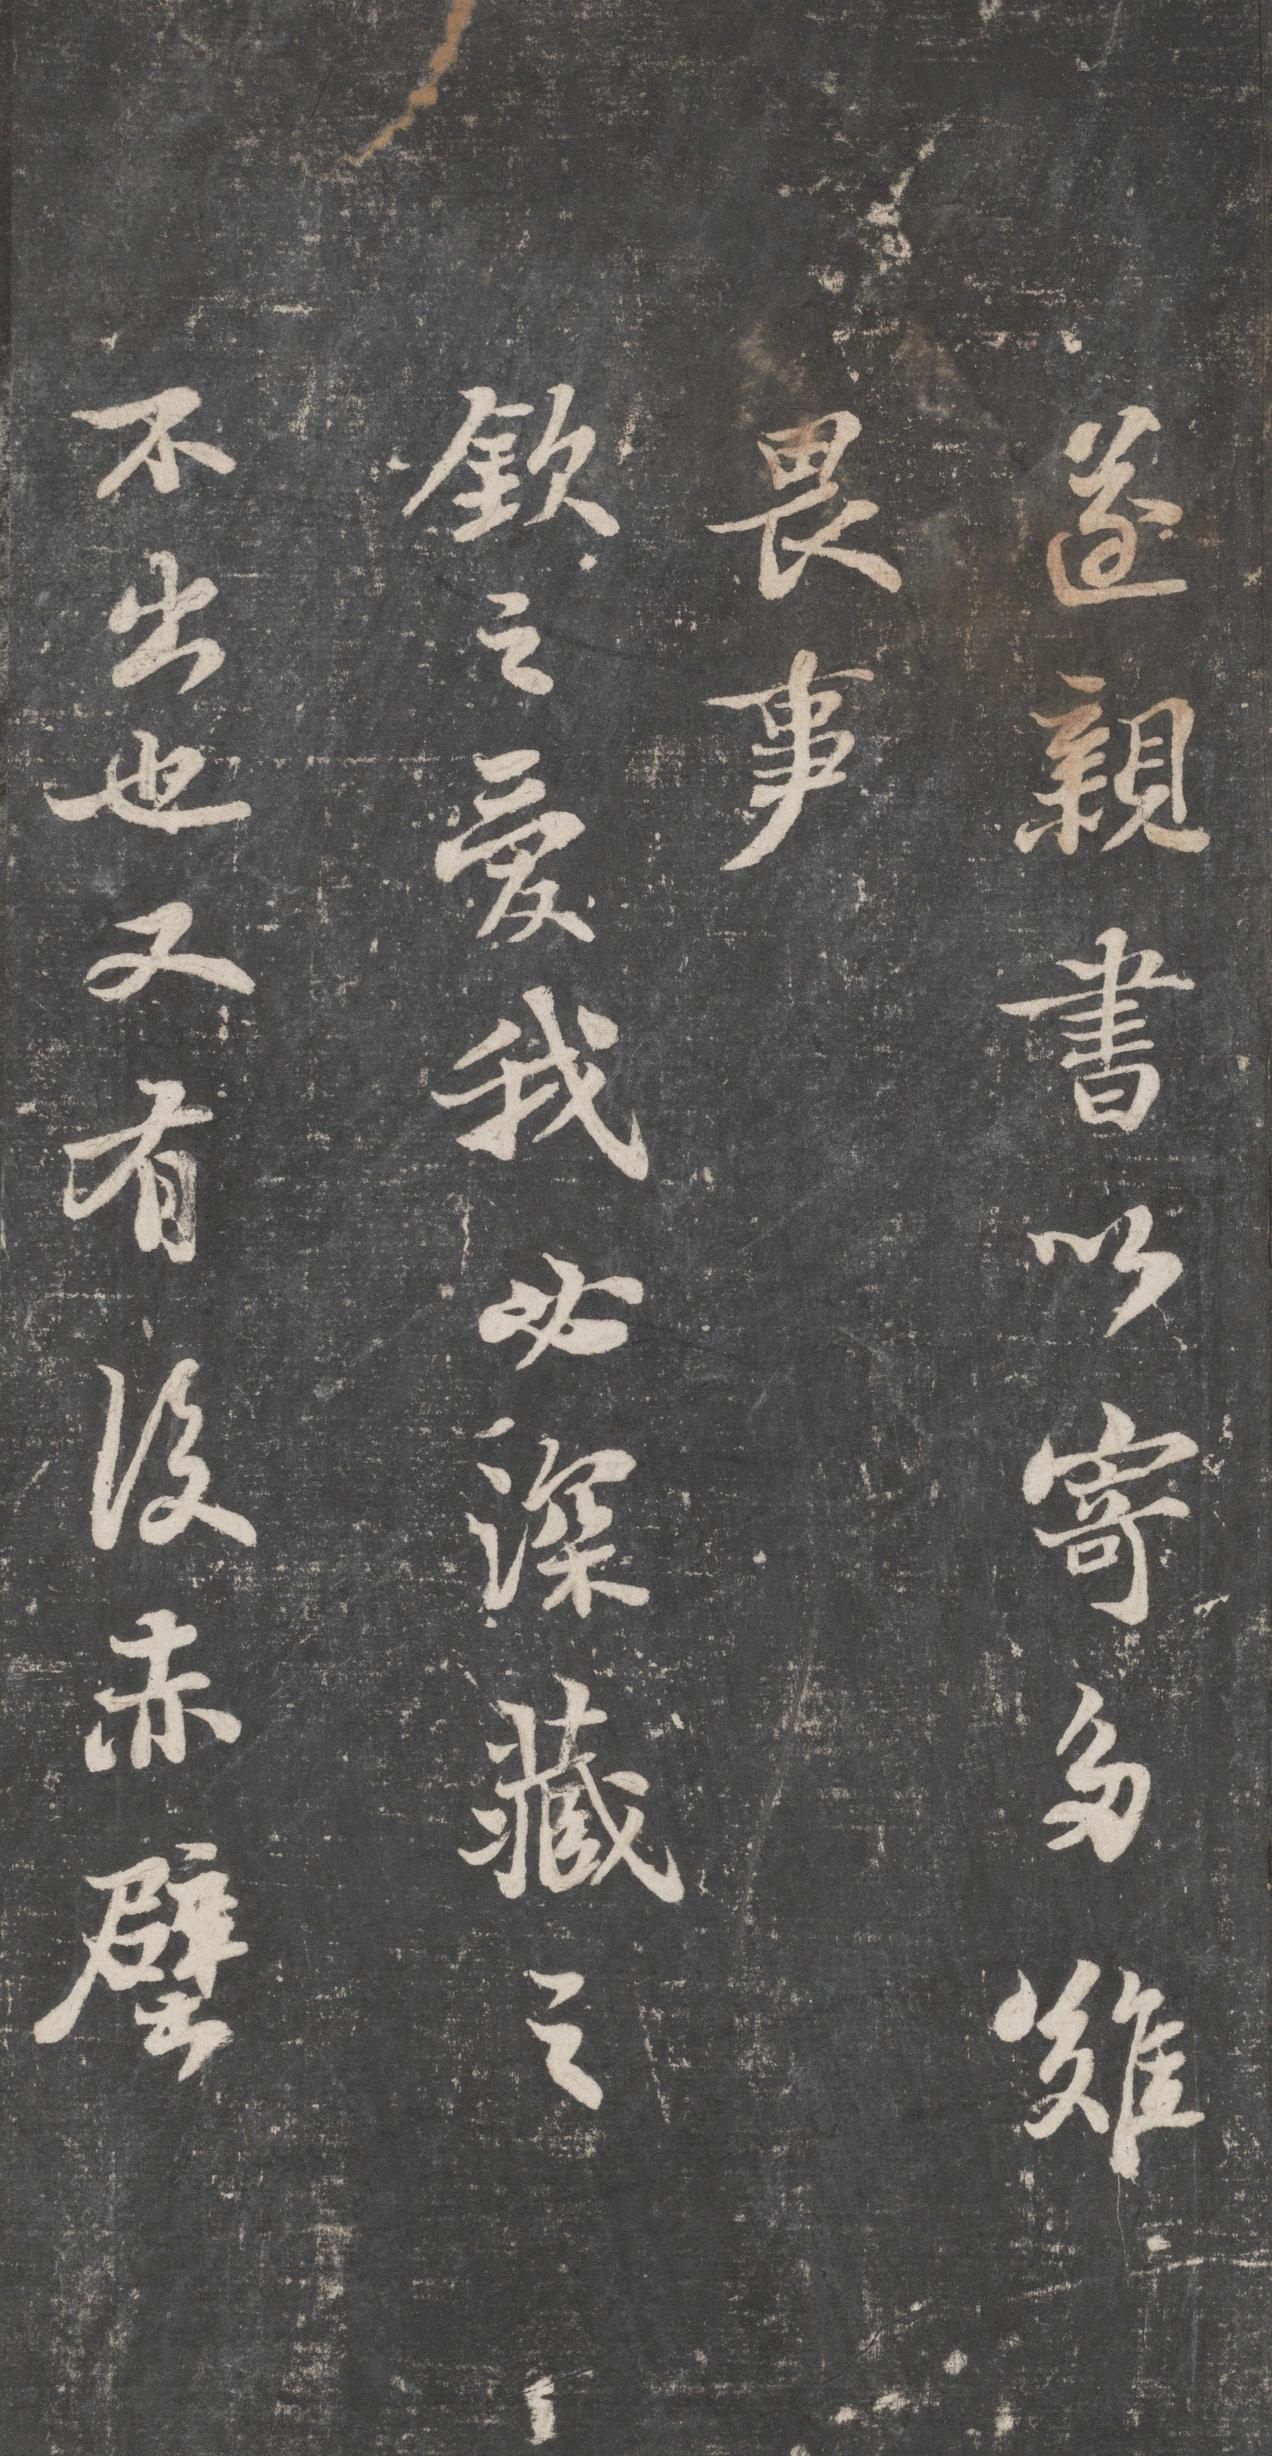 遂親書以寄多難
畏事
欽之愛我必深藏之
不出也又有後赤壁